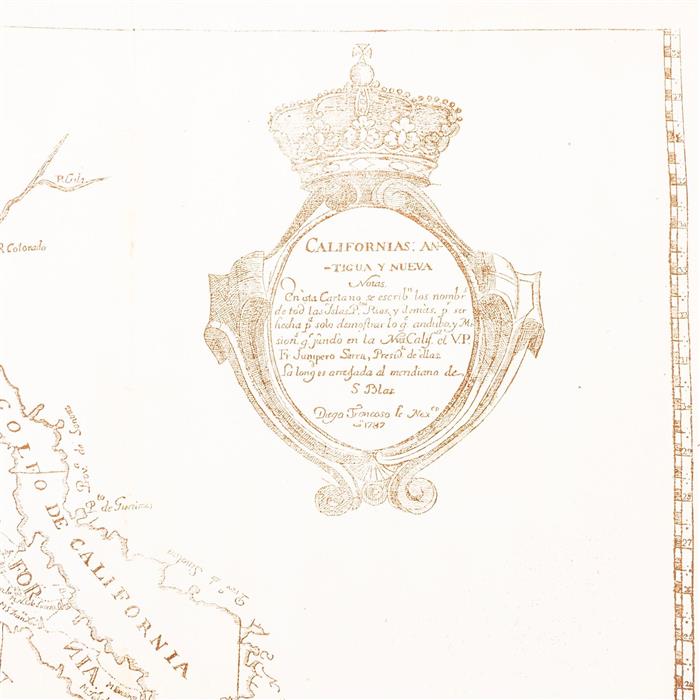 CALIFORNIAS: AN-
-TIGUA Y NUEVA
Notas.
En ẽsta Carta no se escribⁿ los nombrˢ
de tod las Islas, Pᵗᵒˢ Rios, y demas, pʳ ser
hecha pᵃ solo demostrar lo qᵉ anduvo, y Mi-
sionˢ qᵉ fundó en la Nᵃ Califᵃ el V.P.
Fr Junipero Serra, Presidᵉ de ellas.
La longᵈ es arreglada al meridiano de
S Blas
Diego Troncoso lo Mexᶜᵒ
1787
R. Gila
R Colorado
GOLFO DE CALIFORNIA
de Sonora
de Guaimas
de Sinaloa
FOR
NIA
27